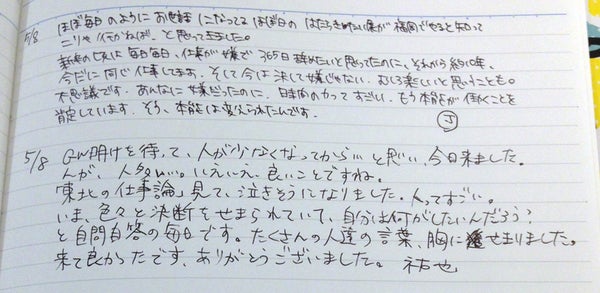 5/8 ほぼ毎日のようにお世話になってるほぼ日の はたらきたい展が福岡でやると知って
こりゃ行かねば、と思ってきました。
新卒の頃は毎日毎日、仕事が嫌で365日辞めたいと思ってたのに、それから約10年、
今だに同じ仕事してます。そして今は決して嫌じゃない。むしろ楽しいと思うことも。
不思議です。あんなに嫌だったのに、日常の力ってすごい。もう本能が働くことを
肯定しています。そう、本能は変えられたんです。
J
5/8 GW明けを待って、人が少なくなってからいと思い、今日来ました。
んが、人多い。いえいえ、良いことですね。
「東北の仕事論」見て、泣きそうになりました。人ってすごい。
いま、色々と決断をせまられていて、自分は何がしたいんだろう?
と自問自答の毎日です。たくさんの人達の言葉、胸にせまりました。
来て良かったです、ありがとうございました。 祐也